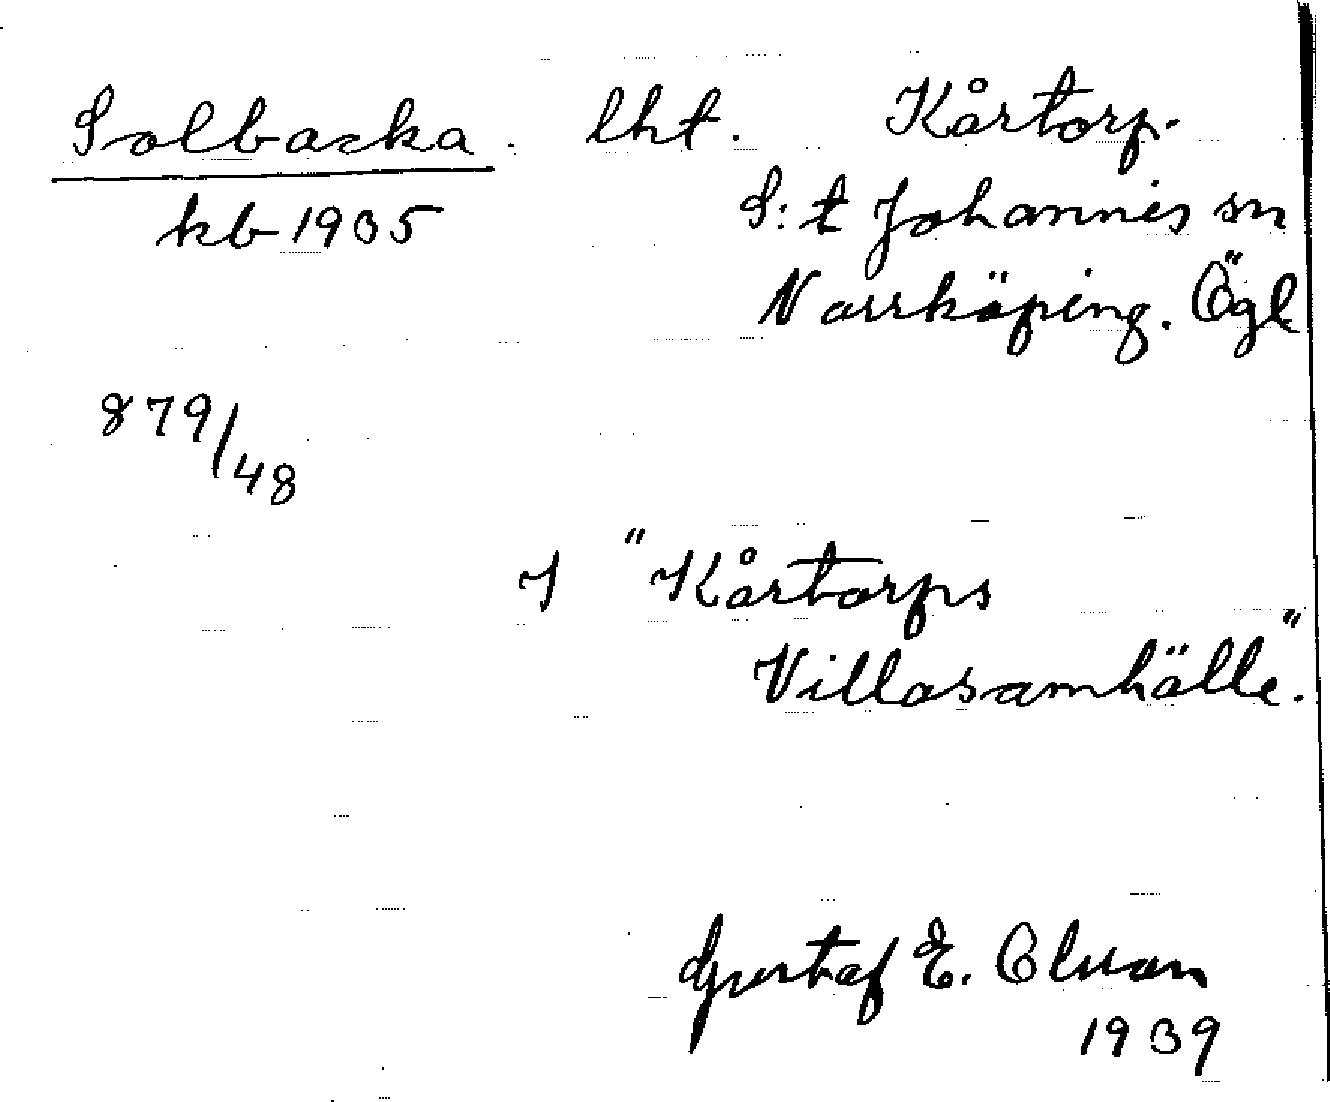 Solbacka. lht. Kårtorp.
kb 1935 S:t Johannis sn
Norrköping. Ögl
879/48
I "Kårtorps
Villasamhälle".
Gustaf E.
1939